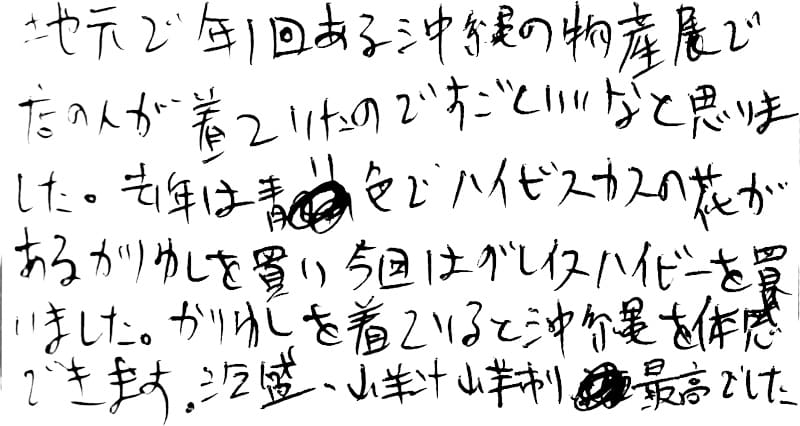 地元で年1回ある沖縄の物産展で
店の人が着ていたのですごくいいなと思いま
した。去年は青色でハイビスカスの花が
あるかりゆしを買い今回はグレイスハイビーを買
いました。かりゆしを着ていると沖縄を体感
できます。泡盛、山羊汁山羊刺最高でした